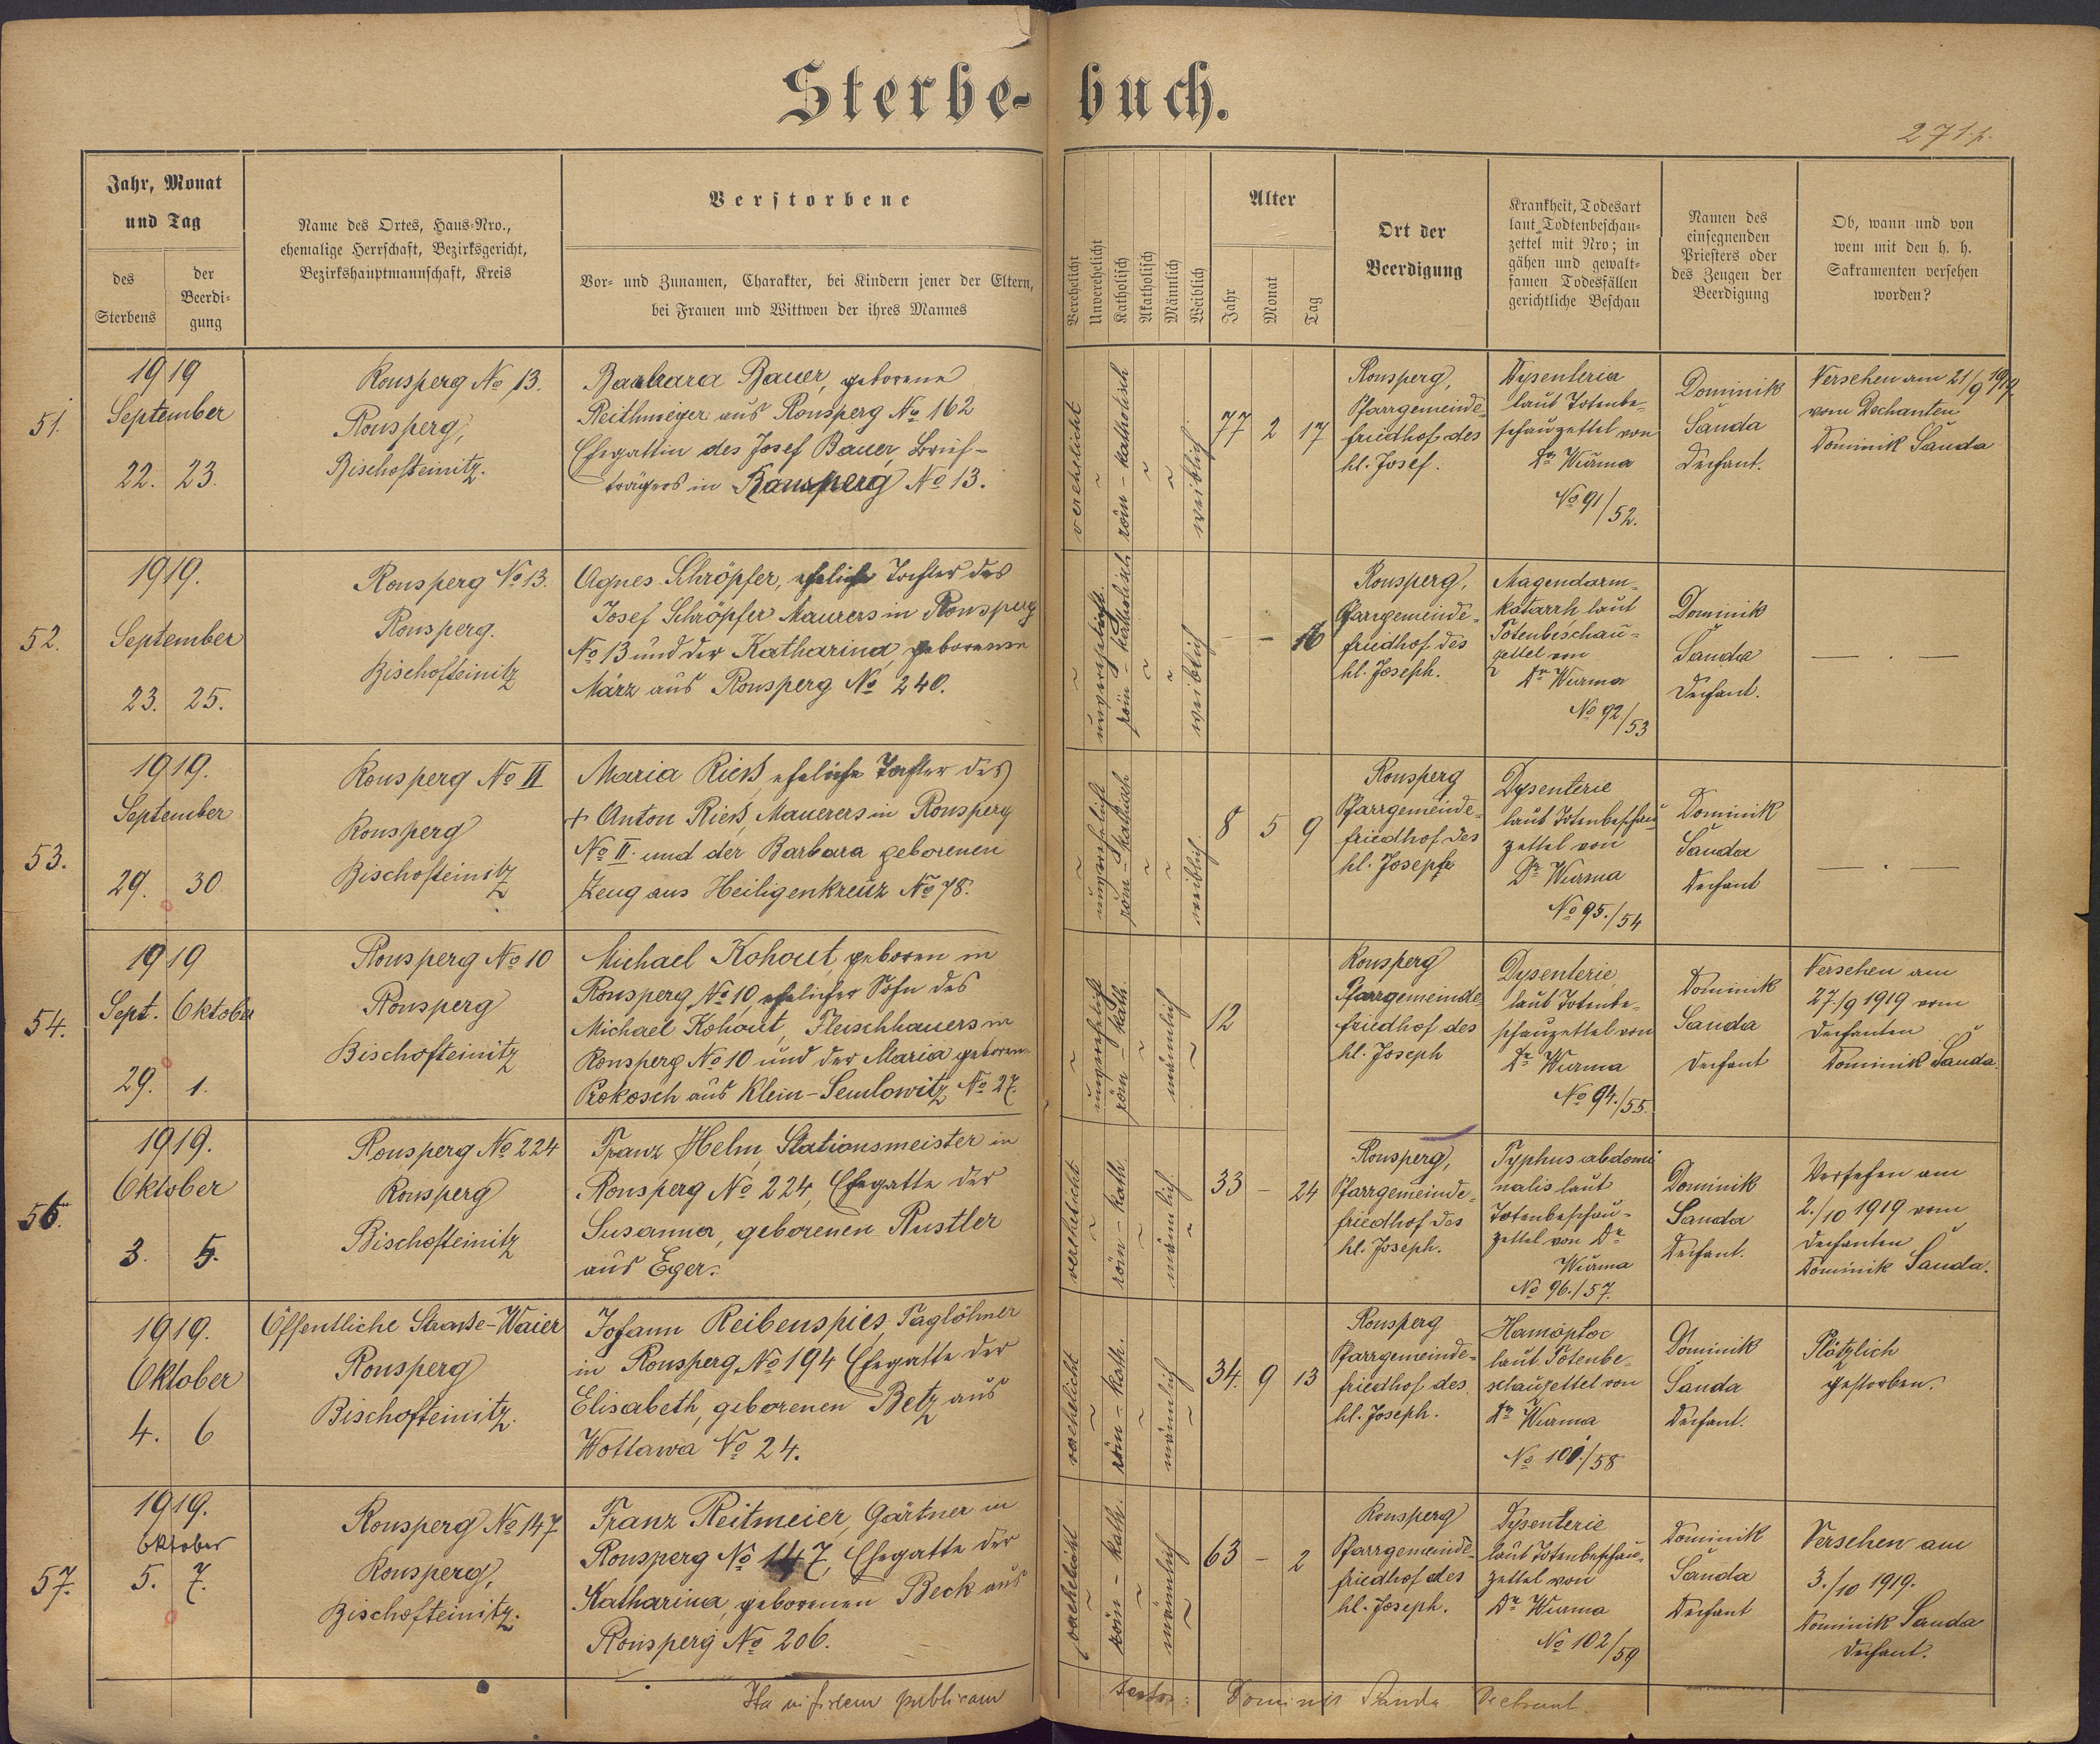 Sterbe-buch.
271 f.
Jahr, Monat
und Tag
des
Sterbens
der
Beerdi-
gung
Name des Ortes, Haus-Nro.,
ehemalige Herrschaft, Bezirksgericht,
Bezirkshauptmannschaft, Kreis
Verstorbene
Vor- und Zunamen, Charakter, bei Kindern jener der Eltern,
bei Frauen und Wittwen der ihres Mannes
Verehelicht
Unverehelicht
Katholisch
Akatholisch
Männlich
Weiblich
Alter
Jahr
Monat
Tag
Ort der
Beerdigung
Krankheit, Todesart
laut Todtenbeschau-
zettel mit Nro; in
gähen und gewalt-
samen Todesfällen
gerichtliche Beschau
Namen des
einsegnenden
Priesters oder
des Zeugen der
Beerdigung
Ob, wann und von
wem mit den h. h.
Sakramenten versehen
worden?
51.
1919
September
22. 23.
Ronsperg No 13.
Ronsperg,
Bischofteinitz.
Barbara Bauer, geborene
Reithmeyer aus Ronsperg No 162
Ehegattin des Josef Bauer, Brief-
trägers in Ronsperg No 13.
verehelicht
röm-katholisch
weiblich
77 2 17
Ronsperg,
Pfarrgemeinde-
friedhof des
hl. Josef.
Dysenteria
laut Totenbe-
schauzettel von
Dr Wurma
No 91/52.
Dominik
Šanda
Dechant.
Versehen am 21/9 1919.
vom Dechanten
Dominik Šanda
52.
1919.
September
23. 25.
Ronsperg No 13.
Ronsperg.
Bischofteinitz
Agnes Schröpfer, eheliche Tochter des
Josef Schröpfer Maurers in Ronsperg
No 13 und der Katharina, geborenen
März aus Ronsperg No 240.
unverehelicht.
röm-katholisch
weiblich
- - 16
Ronsperg,
Pfarrgemeinde-
friedhof des
hl. Joseph.
Magendarm-
katarrh laut
Totenbeschau-
zettel von
Dr Wurma
No 92/53
Dominik
Šanda
Dechant.
— . —
53.
1919.
September
29. 30.
Ronsperg No II
Ronsperg
Bischofteinitz
Maria Rieß, eheliche Tochter des
+ Anton Rieß, Mauerers in Ronsperg
No II. und der Barbara geborenen
Zeug aus Heiligenkreuz No 78.
unverehelicht
röm-katholisch
weiblich.
8 5 9
Ronsperg
Pfarrgemeinde-
friedhof des
hl. Josephs
Dysenterie
laut Totenbeschau
zettel von
Dr Wurma
No 95./54
Dominik
Šanda
Dechant
— . —
54.
1919
Sept. Oktober
29. 1.
Ronsperg No 10
Ronsperg
Bischofteinitz
Michael Kohout, geboren in
Ronsperg No 10, ehelicher Sohn des
Michael Kohout, Fleischhauers in
Ronsperg No 10 und der Maria geboren.
Prokosch aus Klein-Semlowitz No 27.
unverehelicht
röm-kath.
männlich
12
Ronsperg
Pfarrgemeinde
friedhof des
hl. Joseph
Dysenterie,
laut Totenbe-
schauzettel von
Dr Wurma
No 94./55.
Dominik
Šanda
Dechant
Versehen am
27./9 1919 vom
Dechanten
Dominik Šanda.
56.
1919.
Oktober
3. 5.
Ronsperg No 224
Ronsperg
Bischofteinitz
Franz Helm, Stationsmeister in
Ronsperg No 224, Ehegatte der
Susanna, geborenen Rustler
aus Eger.
verehelicht
röm-kath.
männlich.
33 - 24
Ronsperg,
Pfarrgemeinde-
friedhof des
hl. Joseph.
Typhus abdomi
nalis laut
Totenbeschau-
zettel von Dr
Wurma
No 96./57.
Dominik
Šanda
Dechant.
Versehen am
2./10 1919 vom
Dechanten
Dominik Šanda.
1919.
Oktober
4. 6
Öffentliche Strasse-Waier
Ronsperg
Bischofteinitz.
Johann Reibenspies, Taglöhner
in Ronsperg No 194 Ehegatte der
Elisabeth, geborenen Betz aus
Wottawa No 24.
verehelicht
röm-kath.
männlich
34. 9 13
Ronsperg
Pfarrgemeinde-
friedhof des
hl. Joseph.
Hamoptoe
laut Totenbe-
schauzettel von
Dr Wurma
No 101/58
Dominik
Šanda
Dechant.
Plötzlich
gestorben.
57.
1919.
Oktober
5. 7.
Ronsperg No 147
Ronsperg,
Bischofteinitz.
Franz Reitmeier, Gärtner in
Ronsperg No 147, Ehegatte der
Katharina, geborenen Beck aus
Ronsperg No 206.
verehelicht
röm-kath.
männlich
63 - 2
Ronsperg
Pfarrgemeinde-
friedhof des
hl. Joseph.
Dysenterie
laut Totenbeschau-
zettel von
Dr Wurma
No 102/59
Dominik
Šanda
Dechant
Versehen am
3./10 1919.
Dominik Šanda
Dechant.
Ita in fidem publicam testor: Dominik Šanda Dechant